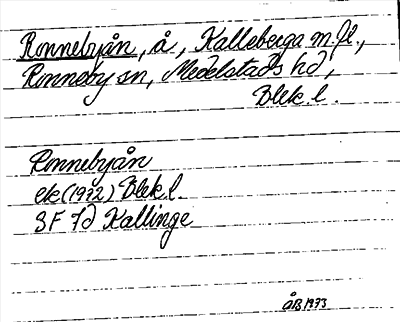 Ronnebyån, å, Kalleberga m.fl.,
Ronneby sn, Medelstads hd,
Blek. l.
Ronnebyån
ek (1972) Blek. l.
3F 7d Kallinge
ÅB 1973